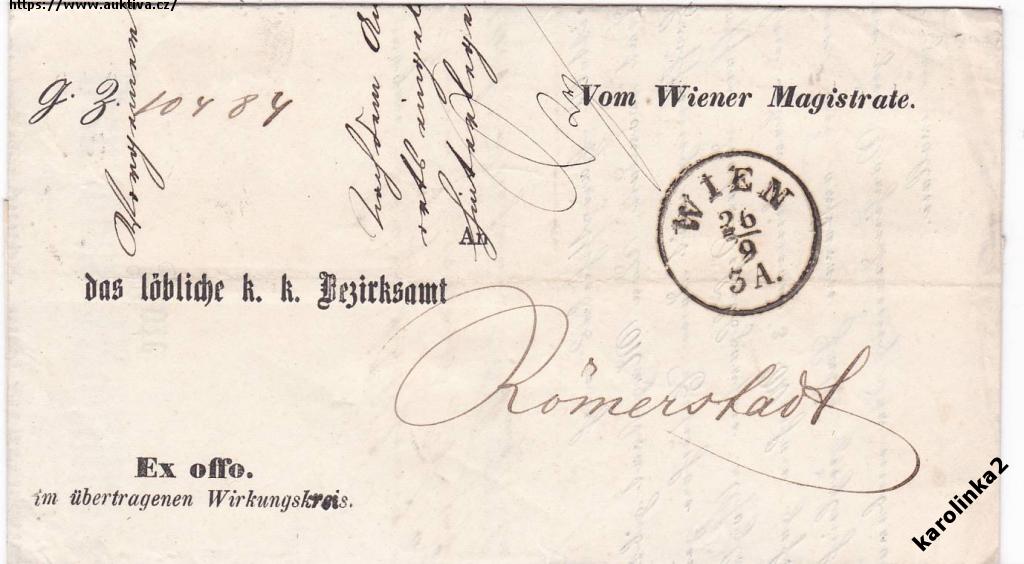 https://www.auktiva.cz/
G. Z. 10484
Vom Wiener Magistrate.
WIEN
26/9
3 A.
An
das löbliche k. k. Bezirksamt
Römerstadt
Ex offo.
im übertragenen Wirkungskreis.
karolinka2